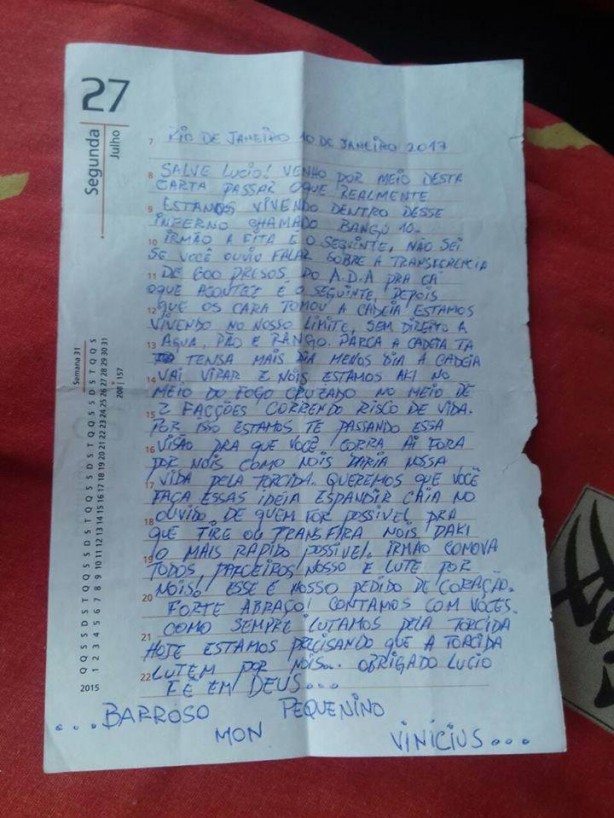 27
Segunda
Julho
7
RIO DE JANEIRO 10 DE JANEIRO 2017
8 SALVE LUCIO! VENHO POR MEIO DESTA
CARTA PASSAR OQUE REALMENTE
9 ESTAMOS VIVENDO DENTRO DESSE
INFERNO CHAMADO BANGÚ 10.
10 IRMÃO A FITA É O SEGUINTE, NÃO SEI
SE VOCÊ OUVIO FALAR SOBRE A TRANSFERENCIA
11 DE 600 PRESOS DO A.D.A PRA CÁ
OQUE ACONTEZE É O SEGUINTE, DEPOIS
12 QUE OS CARA TOMOU A CADEIA ESTAMOS
VIVENDO NO NOSSO LIMITE, SEM DIREITO A
13 AGUA, PÃO E RANGO. PARCA A CADEIA TA
TENSA MAIS DIA MENOS DIA A CADEIA
14 VAI VIRAR E NÓIS ESTAMOS AKI NO
MEIO DO FOGO CRUZADO NO MEIO DE
15 2 FACÇÕES CORRENDO RISCO DE VIDA.
POR ISSO ESTAMOS TE PASSANDO ESSA
16 VISÃO PRA QUE VOCÊ CORRA AI FORA
POR NOIS COMO NOIS DARIA NOSSA
17 VIDA PELA TORCIDA. QUEREMOS QUE VOCÊ
FAÇA ESSAS IDEIA ESPANDIR CAIA NO
18 OUVIDO DE QUEM FOR POSSIVEL PRA
QUE TIRE OU TRANSFIRA NOIS DAKI
19 O MAIS RAPIDO POSSIVEL, IRMÃO COMOVA
TODOS PARCEIROS NOSSO E LUTE POR
NOIS! ESSE É NOSSO PEDIDO DE CORAÇÃO.
20 FORTE ABRAÇO! CONTAMOS COM VOCÊS.
COMO SEMPRE LUTAMOS PELA TORCIDA
21 HOJE ESTAMOS PRECISANDO QUE A TORCIDA
LUTEM POR NOIS... OBRIGADO LUCIO
22 F É EM DEUS...
...BARROSO PEQUENINO
MON VINICIUS...
Semana 31
208 | 157
Q Q S S D S T Q Q S S D S T Q Q S S D S T Q Q S S D S T Q Q S
1 2 3 4 5 6 7 8 9 10 11 12 13 14 15 16 17 18 19 20 21 22 23 24 25 26 27 28 29 30 31
2015